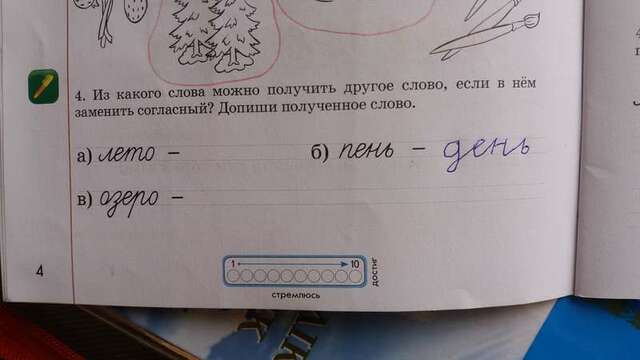 4. Из какого слова можно получить другое слово, если в нём
заменить согласный? Допиши полученное слово.
а) лето –
б) пень – день
в) озеро –
4
1 10
стремлюсь
достиг